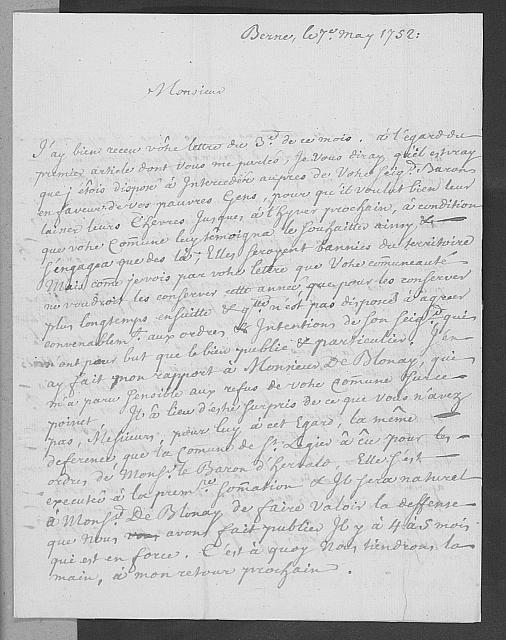 Berne, le 7e. may 1752:
Monsieur
J'ay bien receu vôtre lettre du 3e. de ce mois, à l'egard du
premier article dont vous me parlés, je vous diray qu'il est vray
que j'étois disposé à Interceder aupres de Votre Seigr. Baron
en faveur de vos pauvres Gens, pour qu'il voulut bien leur
laisser leurs Chevres jusques à l'hyver prochain, à condition
que votre Comune luy temoigna le souhaitter ainsy, &
s'engagea que des là Elles seroyent bannies du territoire
Mais come je vois par votre lettre que Votre comuneauté
ne voudroit les conserver cette année que pour les conserver
plus longtemps ensuitte & qlle. n'est pas disposée d'agréer
convenablemt. aux ordres & Intentions de son Seigr. qui
n'ont pour but que le bien publie & particulier. J'en
ay fait mon rapport à Monsieur De Blonay, qui
m'a paru sensible aux refus de votre Comune sur ce
poinct Il a lieu d'estre surpris de ce que vous n'avez
pas, Messieurs, pour luy à cet Egard, la même
deference que la Comune de St. Legier à eu pour les
ordres de Monsr. le Baron d'hervelo, Elle s'est
executée à la premre. somation & Il sera naturel
à Monsr. De Blonay de faire valoir la deffense
que nous avons fait publier Il y à 4 à 5 mois
qui est en force. C'est à quoy Nous tiendrons la
main, à mon retour prochain.